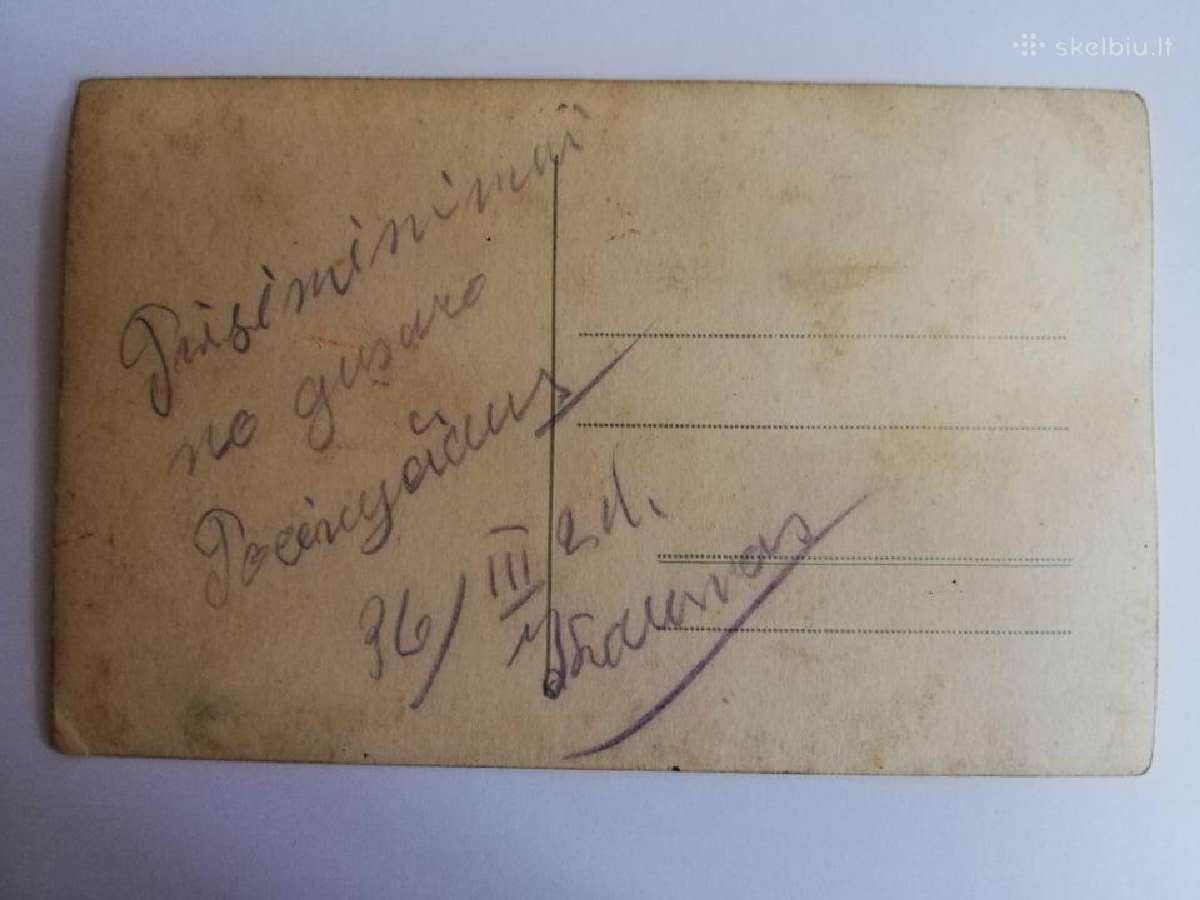 skelbiu.lt
Prisiminimui
no gusaro
36/III 2d.
Kaunas